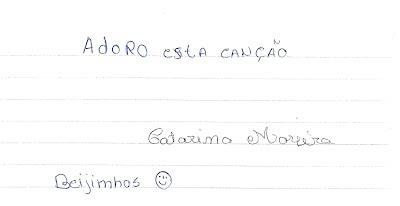 ADORO ESTA CANÇÃO
Catarina Moreira
Beijinhos ☺